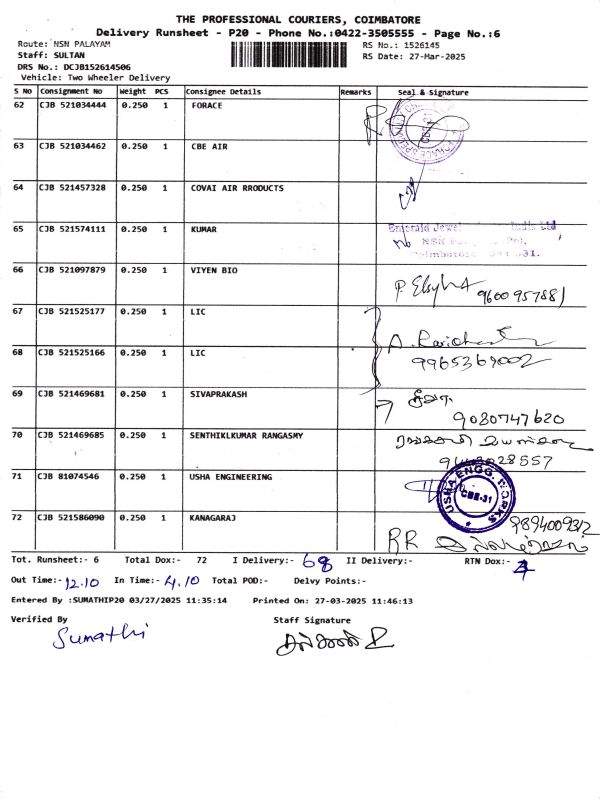 THE PROFESSIONAL COURIERS, COIMBATORE
Delivery Runsheet - P20 - Phone No.:0422-3505555 - Page No.:6
Route: NSN PALAYAM
RS No.: 1526145
Staff: SULTAN
RS Date: 27-Mar-2025
DRS No.: DCJB152614506
Vehicle: Two Wheeler Delivery
S NO Consignment No Weight PCS Consignee Details Remarks Seal & Signature
62 CJB 521034444 0.250 1 FORACE
63 CJB 521034462 0.250 1 CBE AIR
64 CJB 521457328 0.250 1 COVAI AIR RRODUCTS
65 CJB 521574111 0.250 1 KUMAR
66 CJB 521097879 0.250 1 VIYEN BIO
9600957881
67 CJB 521525177 0.250 1 LIC
68 CJB 521525166 0.250 1 LIC
9965369002
69 CJB 521469681 0.250 1 SIVAPRAKASH
9080747620
70 CJB 521469685 0.250 1 SENTHIKLKUMAR RANGASMY
71 CJB 81074546 0.250 1 USHA ENGINEERING
USHA ENGG. WORKS
CBE-31
72 CJB 521586090 0.250 1 KANAGARAJ
RR
Tot. Runsheet:- 6 Total Dox:- 72 I Delivery:- 68 II Delivery:- RTN Dox:- 4
Out Time:- 12.10 In Time:- 4.10 Total POD:- Delvy Points:-
Entered By :SUMATHIP20 03/27/2025 11:35:14 Printed On: 27-03-2025 11:46:13
Verified By
Staff Signature
Sumathi